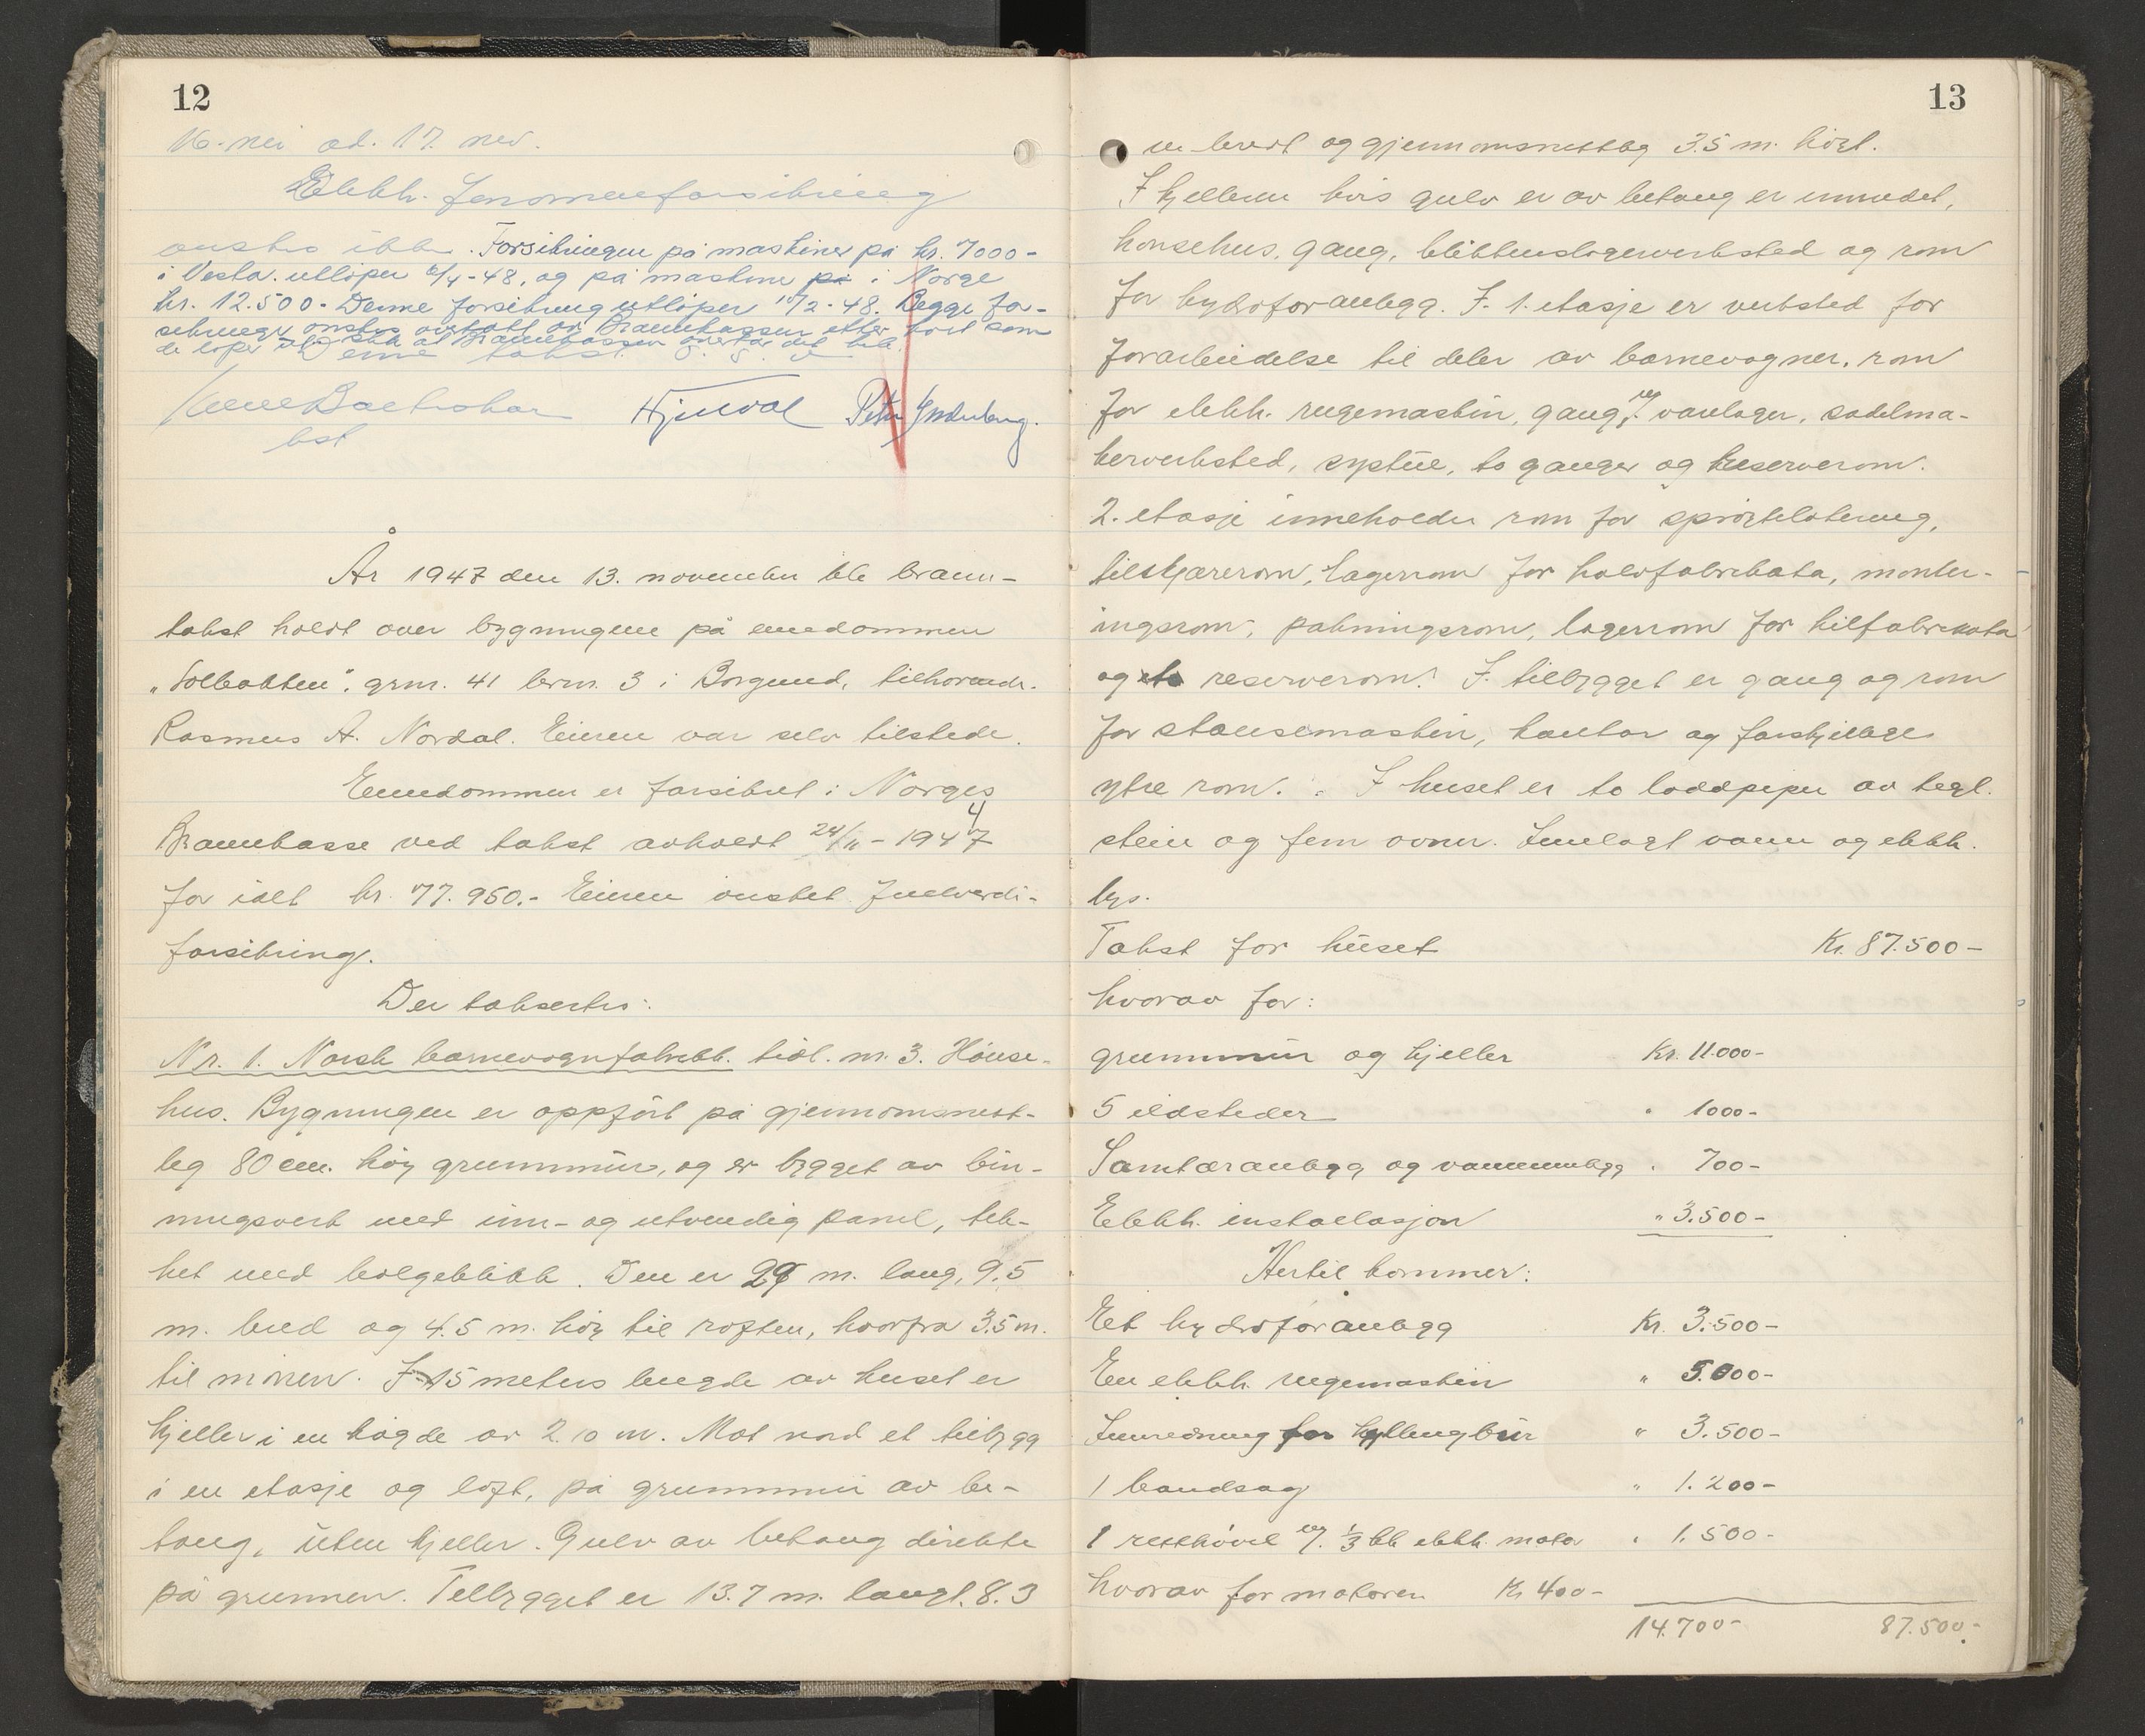 12
16. nei ad. 17. nei.
Elektr. fenomenforsikring
ønskes ikke. Forsikringen på maskiner på kr. 7000-
i Vesta. utløper 6/4-48, og på maskiner på i Norge
kr. 12.500- Denne forsikring utløper 10/2-48. Begge for-
sikringer ønskes overtatt av Brannkassen etter hvert som
de løper ut
Hjelvol Peter
År 1947 den 13. november ble brann-
takst holdt over bygningene på eiendommen
"Solbakken". grnr. 41 brnr. 3 i Borgund, tilhørende.
Rasmus A. Nordal. Eieren var selv tilstede.
Eiendommen er forsikret i Norges
Brannkasse ved takst avholdt 24/11-1944
for ialt kr. 77.950.- Eieren ønsket fullverdi-
forsikring.
Der takseres:
Nr. 1. Norsk barnevognfabrikk. tidl. nr. 3. Hønse-
hus. Bygningen er oppført på gjennomsnitt-
leg 80 cm. høy grunnmur, og er bygget av bin-
ningsverk med inn- og utvendig panel, tek-
ket med bølgeblikk. Den er 29 m. lang, 9.5
m. bred og 4.5 m. høy til røsten, hvorfra 3.5 m.
til mønen. I 15 meters lengde av huset er
kjeller i en høgde av 2.10 m. Mot nord et tilbygg
i en etasje og loft, på grunnmur av be-
tong, uten kjeller. Gulv av betong direkte
på grunnen. Tilbygget er 13.7 m. langt. 8.3
13
m bredt og gjennomsnittleg 3.5 m. høgt.
I kjelleren hvis gulv er av betong er innredet,
hønsehus, gang, blikkenslagerverksted og rom
for hydroforanlegg. I 1. etasje er verksted for
forarbeidelse til deler av barnevogner, rom
for elektr. rugemaskin, gang, varelager, sadelma-
kerverksted, systue, to ganger og reserverom.
2. etasje inneholder rom for sprøytelakering,
tilskjærerom, lagerrom for halvfabrikata, monter-
ingsrom, pakningsrom, lagerrom for helfabrikata
og to reserverom. I tilbygget er gang og rom
for stansemaskin, kontor og forskjellige
ytre rom. I huset er to loddpiper av tegl-
stein og fem ovner. Innlagt vann og elektr.
lys.
Takst for huset Kr. 87.500-
hvorav for:
grunnmur og kjeller Kr. 11.000-
5 ildsteder " 1000-
Sanitæranlegg og vannanlegg " 700-
Elektr. installasjon " 3.500-
Hertil kommer:
Et hydroforanlegg Kr. 3.500-
En elektr. rugemaskin " 5.000-
Innredning for kyllingbur " 3.500-
1 bandsag " 1.200-
1 retthøvel m/. 1/3 hk elektr. motor " 1.500-
hvorav for motoren Kr 400-
14.700- 87.500-